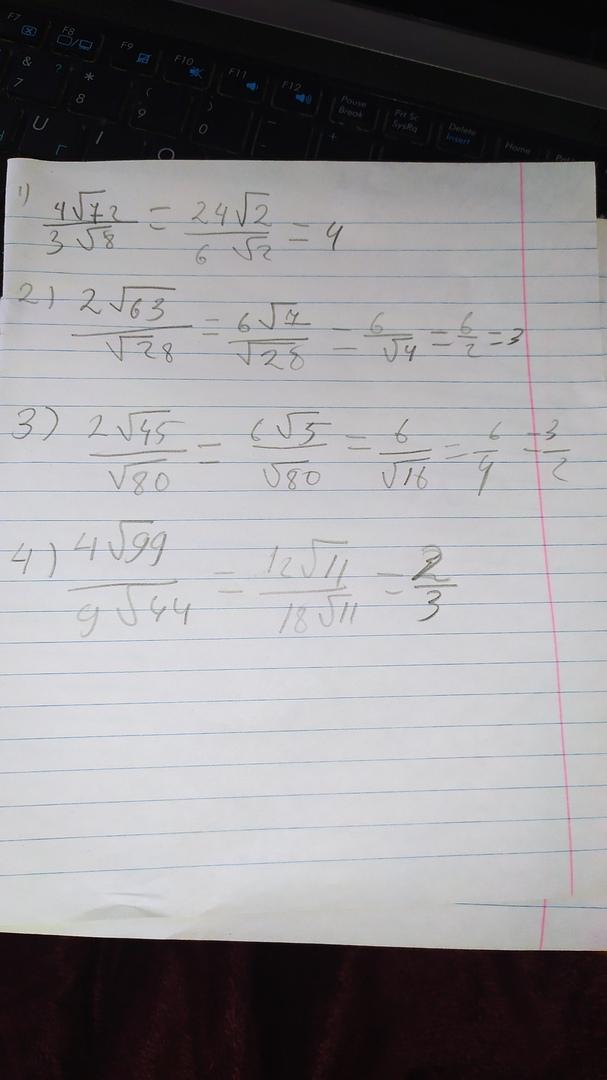 F7 F8 F9 F10 F11 F12 Pause Break Prt Sc SysRq Delete Insert Home
& 7 ? * 8 ( 9 ) 0 - +
U Г I O
1) 4√72/3√8 = 24√2/6√2 = 4
2) 2√63/√28 = 6√7/√28 = 6/√4 = 6/2 = 3
3) 2√45/√80 = 6√5/√80 = 6/√16 = 6/4 = 3/2
4) 4√99/9√44 = 12√11/18√11 = 2/3